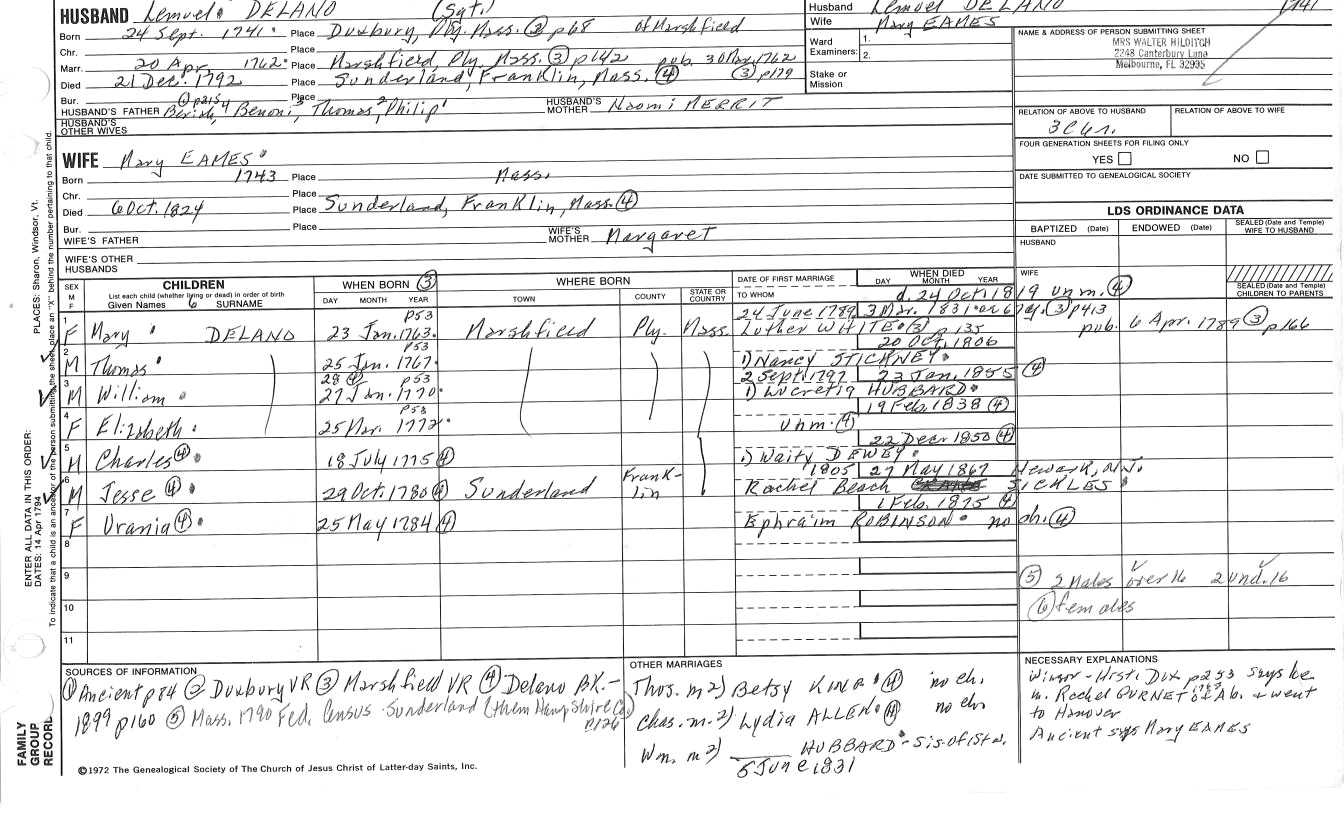 HUSBAND Lemuel DELANO (Sgt.)
Born 24 Sept. 1741 Place Duxbury, Ply. Mass. ② p68 of Marshfield
Chr. Place
Marr. 20 Apr. 1762 Place Marshfield, Ply. Mass. ③ p142 pub. 30 Mar. 1762
Died 21 Dec. 1792 Place Sunderland, Franklin, Mass. ④ ③ p179
Bur. Place
① p215
HUSBAND'S FATHER Beriah⁴, Benoni³, Thomas², Philip¹ HUSBAND'S MOTHER Naomi MERRIT
HUSBAND'S OTHER WIVES
Husband Lemuel DELANO 1741
Wife Mary EAMES
Ward 1.
Examiners: 2.
Stake or Mission
NAME & ADDRESS OF PERSON SUBMITTING SHEET
MRS WALTER HILDITCH
2248 Canterbury Lane
Melbourne, FL 32935
RELATION OF ABOVE TO HUSBAND RELATION OF ABOVE TO WIFE
FOUR GENERATION SHEETS FOR FILING ONLY
YES NO
DATE SUBMITTED TO GENEALOGICAL SOCIETY
WIFE Mary EAMES
Born 1743 Place Mass.
Chr. Place
Died 6 Oct. 1824 Place Sunderland, Franklin, Mass. ④
Bur. Place
WIFE'S FATHER WIFE'S MOTHER Margaret
WIFE'S OTHER HUSBANDS
LDS ORDINANCE DATA
BAPTIZED (Date) ENDOWED (Date) SEALED (Date and Temple) WIFE TO HUSBAND
HUSBAND
WIFE
SEALED (Date and Temple) CHILDREN TO PARENTS
SEX M F
CHILDREN
List each child (whether living or dead) in order of birth
Given Names 6 SURNAME
WHEN BORN ③
DAY MONTH YEAR
WHERE BORN
TOWN COUNTY STATE OR COUNTRY
DATE OF FIRST MARRIAGE
TO WHOM
WHEN DIED
DAY MONTH YEAR
d. 24 Oct. 1819 unm. ④
1 F Mary DELANO p53 23 Jan. 1763 Marshfield Ply. Mass. 24 June 1789 3 Mar. 1831 ③ p413
Luther WHITE ③ p135 pub. 6 Apr. 1789 ③ p166
2 M Thomas p53 25 Jan. 1767 20 Oct. 1806
1) Nancy STICKNEY
3 M William 28 ④ p53 27 Jan. 1770 2 Sept. 1797 23 Jan. 1855 ④
1) Lucretia HUBBARD
4 F Elizabeth p53 25 Mar. 1772 19 Feb. 1838 ④
Unm. ④
5 M Charles ④ 18 July 1775 ④ 22 Decr 1850 ④
1) Waity DEWEY
6 M Jesse ④ 29 Oct. 1780 ④ Sunderland Franklin 1805 27 May 1867 Newark, N.J.
Rachel Beach SICKLES
7 F Urania ④ 25 May 1784 ④ 1 Feb. 1875 ④
Ephraim ROBINSON no ch. ④
8
9
10
11
⑤ 2 Males over 16 2 und. 16
⑥ females
SOURCES OF INFORMATION
① Ancient p84 ② Duxbury VR ③ Marshfield VR ④ Delano BK.-
1899 p160 ⑤ Mass. 1790 Fed. Census - Sunderland (then Hampshire Co.) p126
OTHER MARRIAGES
Thos. m 2) Betsy KING ④ no ch.
Chas. m. 2) Lydia ALLEN ④ no ch
Wm. m 2) HUBBARD - sis. of 1st w.
5 June 1831
NECESSARY EXPLANATIONS
Winsor - Hist. Dux p253 says he
m. Rachel BURNET of Ab. & went
to Hanover
Ancient says Mary EAMES
©1972 The Genealogical Society of The Church of Jesus Christ of Latter-day Saints, Inc.
FAMILY GROUP RECORD
ENTER ALL DATA IN THIS ORDER:
DATES: 14 Apr 1794 PLACES: Sharon, Windsor, Vt.
To indicate that a child is an ancestor of the person submitting the sheet, place an "X" behind the number pertaining to that child.